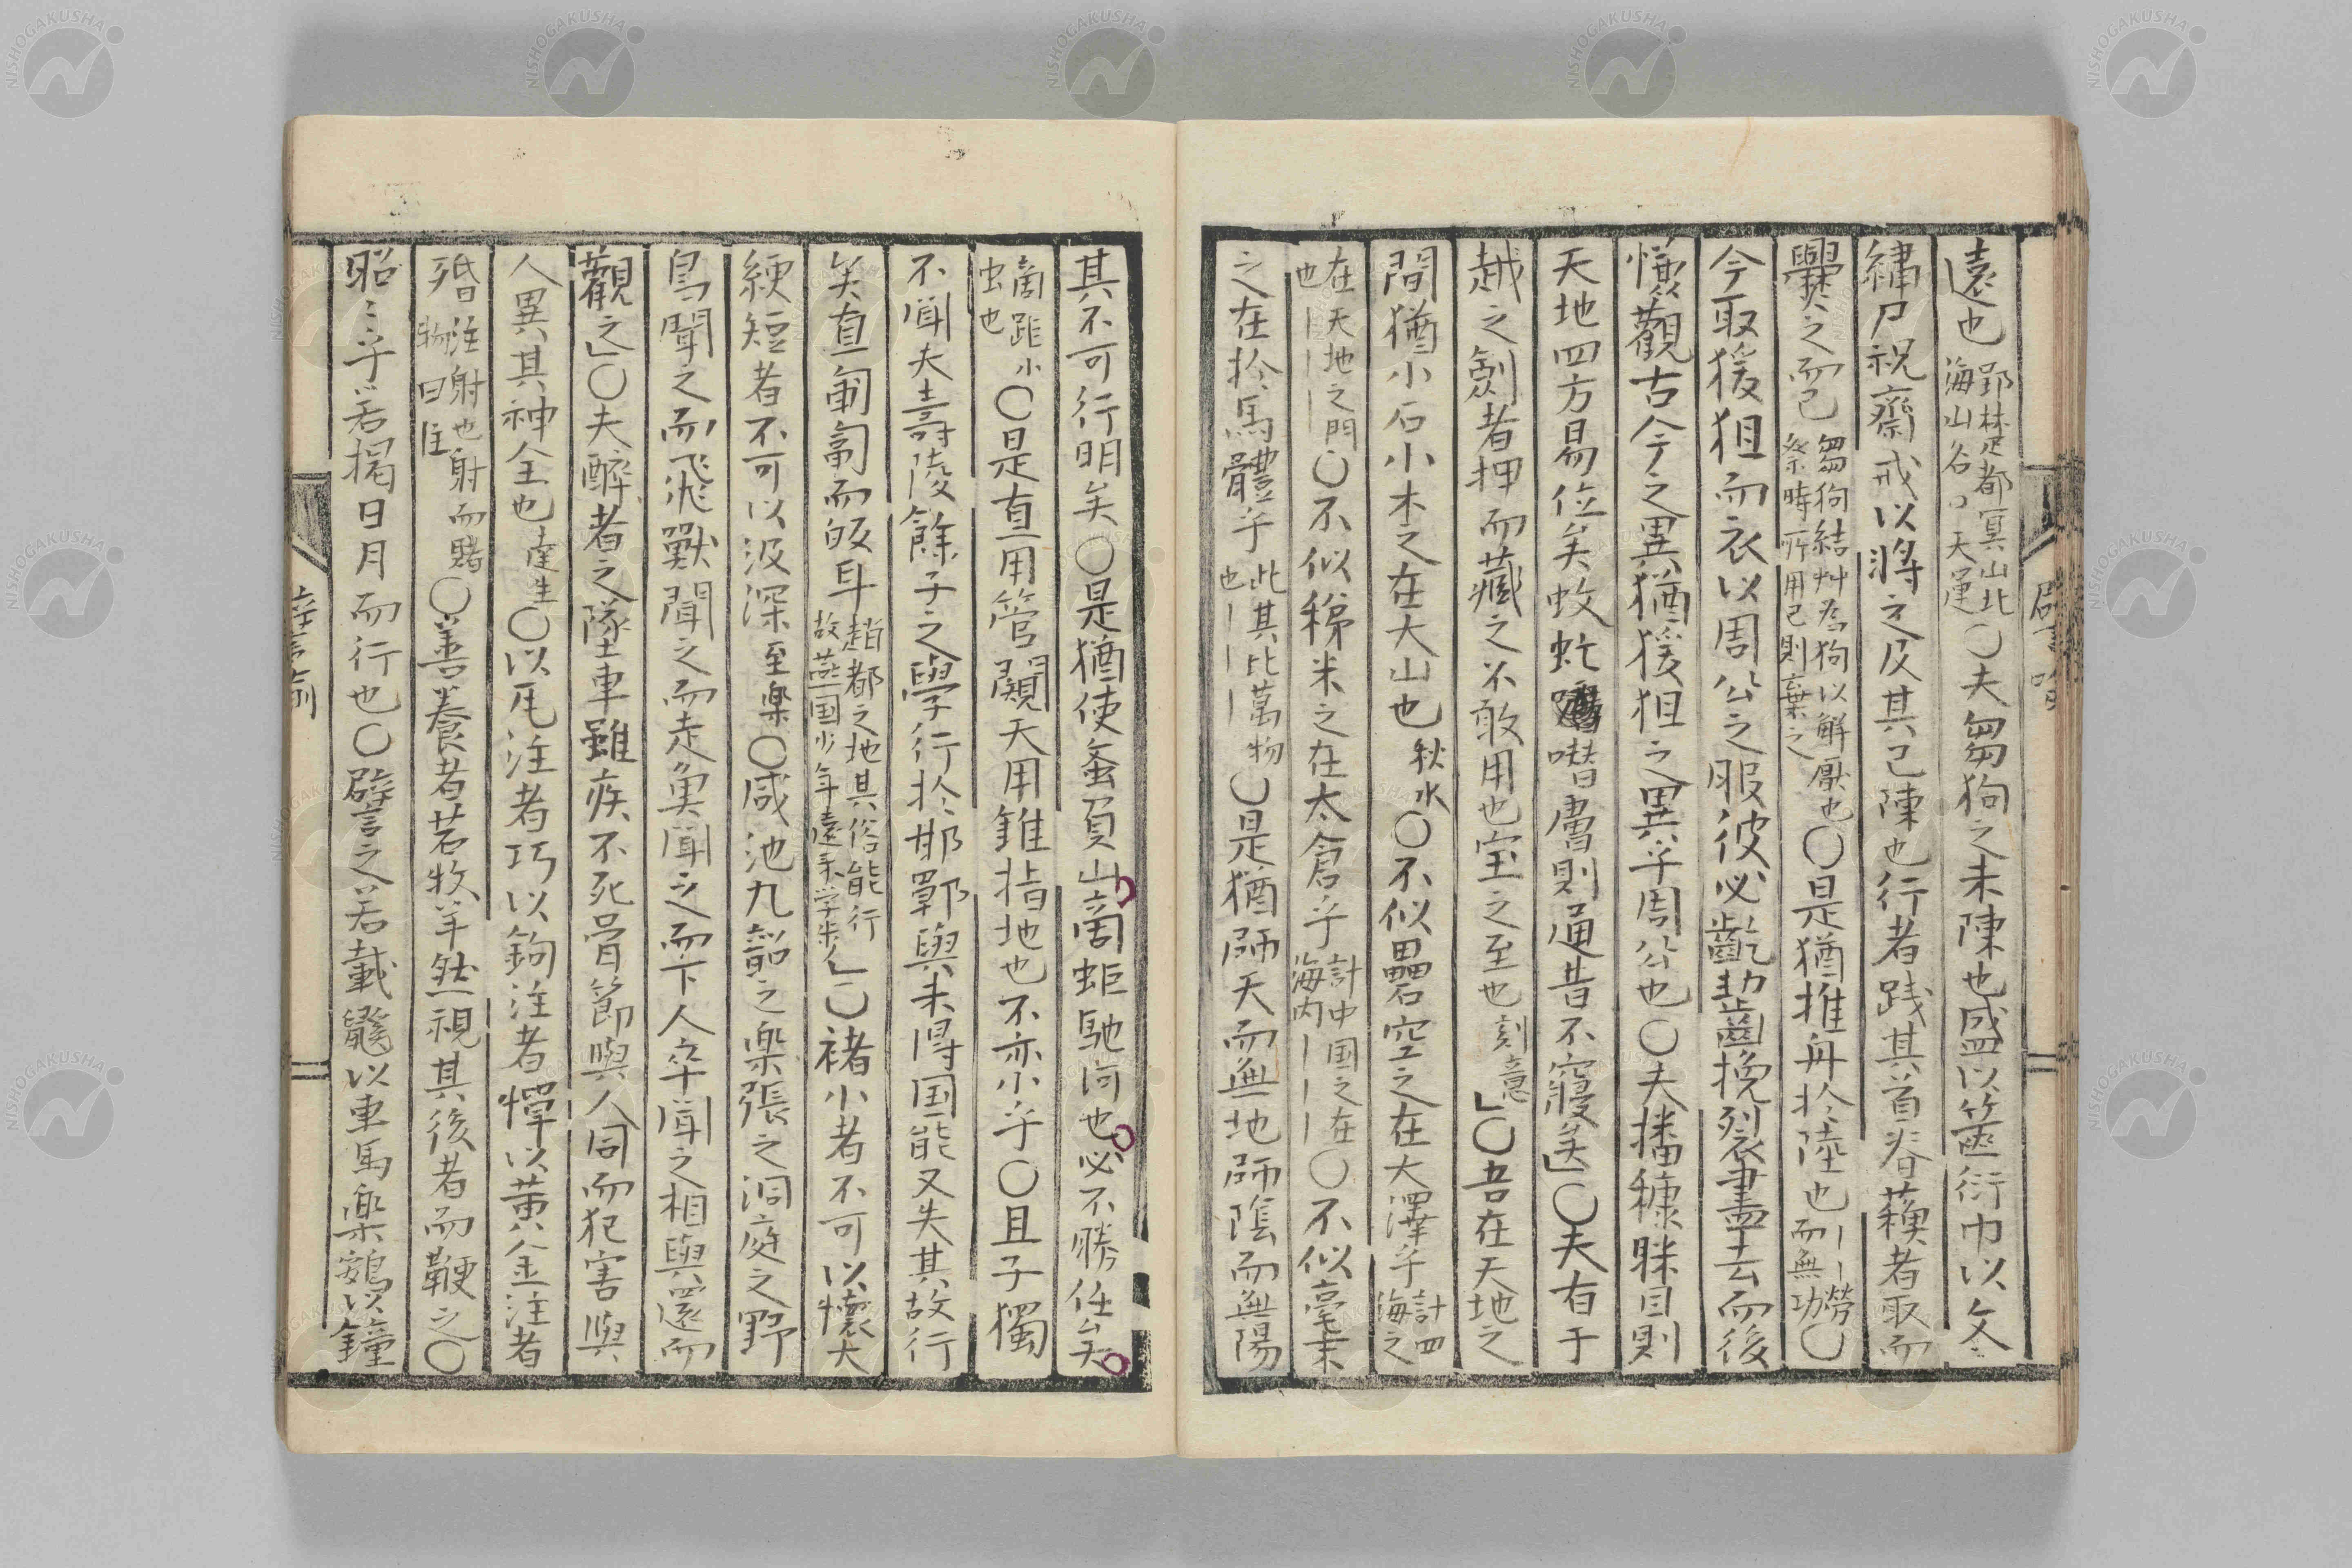 遠也 郢楚都冥山北海山谷〇天運 〇夫芻狗之未陳也盛以篋衍巾以文
繡尸祝齋戒以將之及其已陳也行者践其首脊蘓者取而
爨之而已 芻狗結艸為狗以解厭也祭時所用已則棄之 〇是猶推舟於陸也 ｜｜勞而無功 〇
今取猨狙而衣以周公之服彼必齕齧挽裂盡去而後
慊觀古今之異猶猨狙之異乎周公也〇夫播穅眯目則
天地四方易位矣蚊虻噆膚則通昔不寢矣」〇夫有于
越之劍者押而藏之不敢用也宝之至也 刻意 」〇吾在天地之
間猶小石小木之在大山也 秋水 〇不似礨空之在大澤乎 計四海之
在天地之門｜｜｜也 〇不似稊米之在太倉乎 計中国之在海内｜｜ 〇不似毫末
之在於馬體乎 此其比萬物也｜｜｜ 〇是猶師天而無地師陰而無陽
其不可行明矣〇是猶使蚉負山商蚷馳河也必不勝任矣
商距小虫也 〇是直用管闚天用錐指地也不亦小乎〇且子獨
不聞夫壽陵餘子之學行於邯鄲與未得国能又失其故行
矣直匍匐而皈耳 趙都之地其俗能行故燕国少年遠来学歩 」〇褚小者不可以懷大
綆短者不可以汲深 至楽 〇咸池九韶之楽張之洞庭之野
鳥聞之而飛獸聞之而走魚聞之而下人卒聞之相與還而
觀之」〇夫醉者之墜車雖疾不死骨節與人同而犯害與
人異其神全也 達生 〇以瓦注者巧以鉤注者憚以黄金注者
殙 注射也射而賭物曰注 〇善養者若牧羊然視其後者而鞭之〇
昭ミ乎若掲日月而行也〇譬之若載鼷以車馬楽鴳以鐘
譬喻